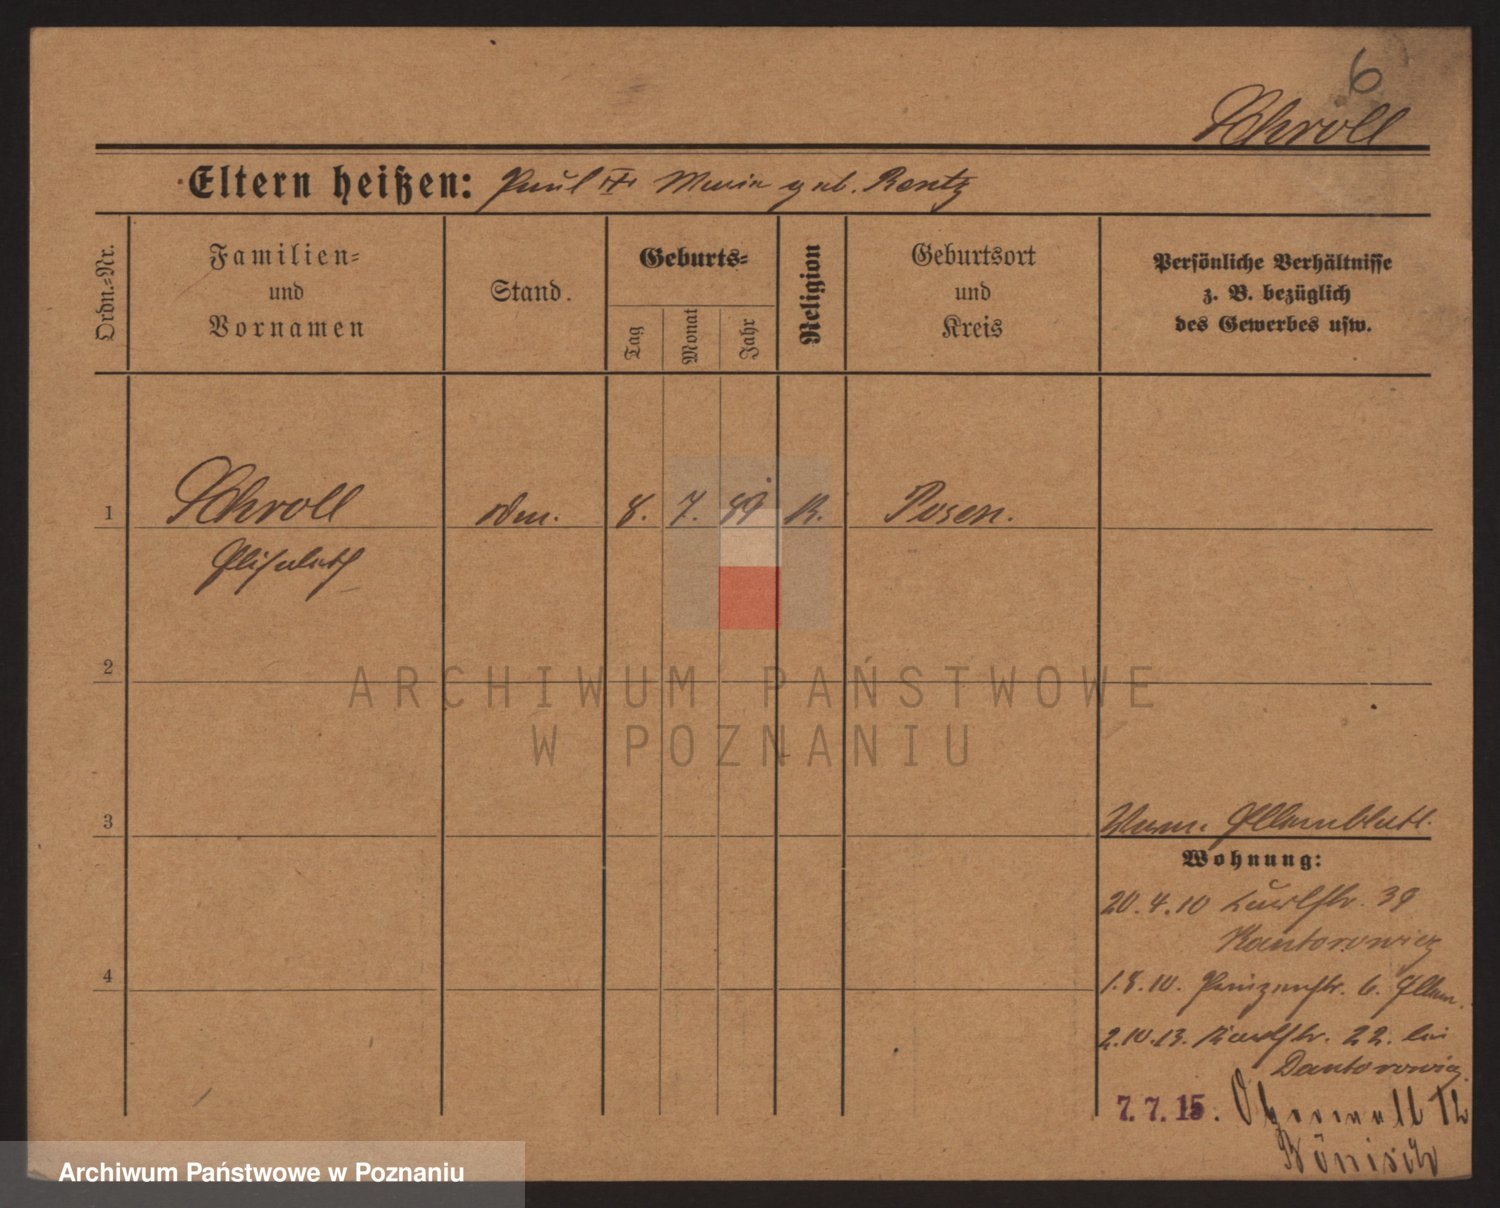 6
Schroll
Eltern heißen: Paul Maria geb. Rentz
Ordn.-Nr.
Familien-
und
Vornamen
Stand.
Geburts-
Tag
Monat
Jahr
Religion
Geburtsort
und
Kreis
Persönliche Verhältnisse
z. B. bezüglich
des Gewerbes usw.
1 Schroll 8. 7. 89 K. Posen.
Elisabeth
2
ARCHIWUM PAŃSTWOWE
W POZNANIU
3
Elternblatt.
Wohnung:
20.4.10 39
Kantorowicz
4
1.8.10. Prinzenstr. 6. Eltern.
2.10.13. Karlstr. 22. bei
Kantorowicz
7.7.15.
Bönisch
Archiwum Państwowe w Poznaniu